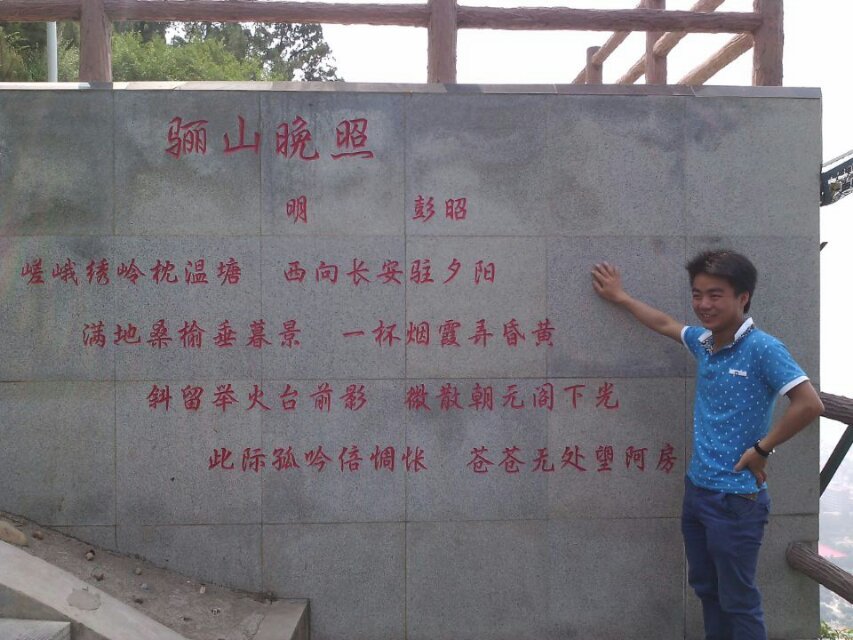 骊山晚照
明 彭昭
嵯峨绣岭枕温塘 西向长安驻夕阳
满地桑榆垂暮景 一杯烟霞弄昏黄
斜留举火台前影 微散朝元阁下光
此际孤吟倍惆怅 苍苍无处望阿房